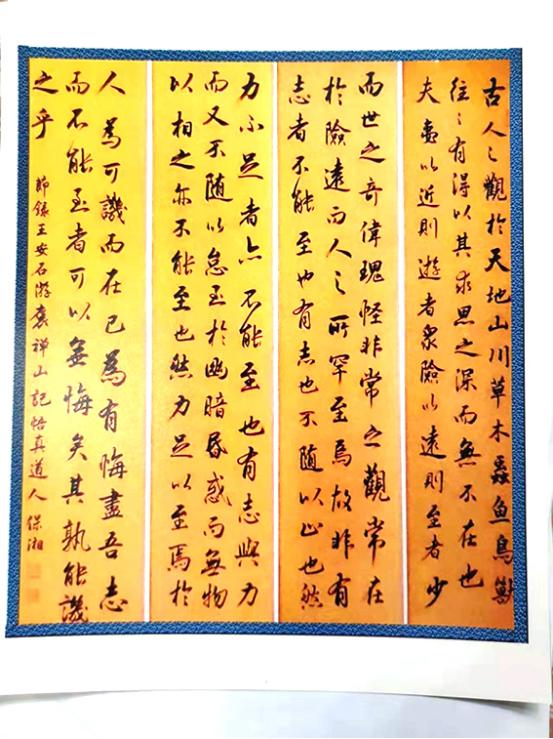 古人之觀於天地山川草木蟲魚鳥獸
往々有得以其求思之深而無不在也
夫夷以近則遊者眾險以遠則至者少
而世之奇偉瑰怪非常之觀常在
於險遠而人之所罕至焉故非有
志者不能至也有志也不隨以止也然
力不足者亦不能至也有志與力
而又不隨以怠至於幽暗昏惑而無物
以相之亦不能至也然力足以至焉於
人為可譏而在己為有悔盡吾志
而不能至者可以無悔矣其孰能譏
之乎
節錄王安石游褒禅山記悟真道人保湘